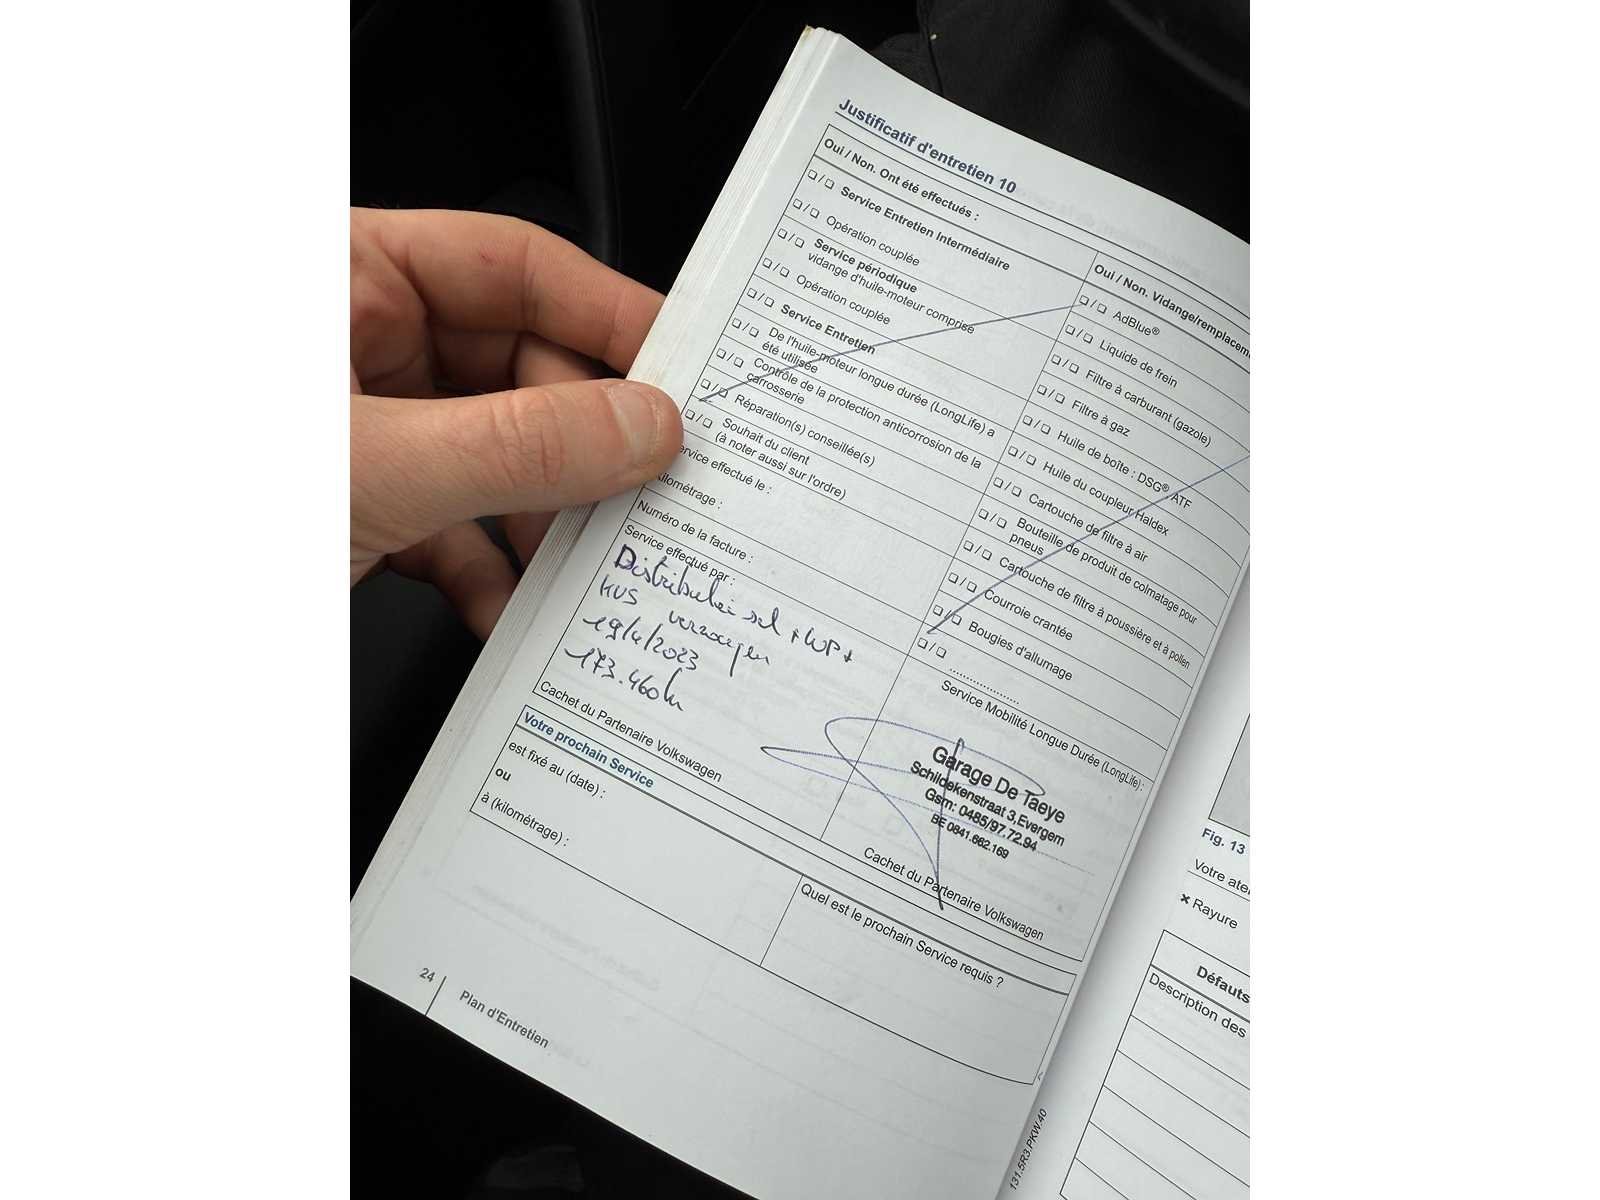 Justificatif d'entretien 10
Oui / Non. Ont été effectués :
❑ / ❑ Service Entretien Intermédiaire
❑ / ❑ Opération couplée
❑ / ❑ Service périodique
vidange d'huile-moteur comprise
❑ / ❑ Opération couplée
❑ / ❑ Service Entretien
❑ / ❑ De l'huile-moteur longue durée (LongLife) a
été utilisée
❑ / ❑ Contrôle de la protection anticorrosion de la
carrosserie
❑ / ❑ Réparation(s) conseillée(s)
❑ / ❑ Souhait du client
(à noter aussi sur l'ordre)
ervice effectué le :
ilométrage :
Numéro de la facture :
Service effectué par :
Distributie set + WP +
KVS vervangen
19/4/2023
173.460km
Cachet du Partenaire Volkswagen
Oui / Non. Vidange/remplacem
❑ / ❑ AdBlue®
❑ / ❑ Liquide de frein
❑ / ❑ Filtre à carburant (gazole)
❑ / ❑ Filtre à gaz
❑ / ❑ Huile de boîte : DSG® ATF
❑ / ❑ Huile du coupleur Haldex
❑ / ❑ Cartouche de filtre à air
❑ / ❑ Bouteille de produit de colmatage pour
pneus
❑ / ❑ Cartouche de filtre à poussière et à pollen
❑ / ❑ Courroie crantée
❑ / ❑ Bougies d'allumage
❑ / ❑ .....................
Service Mobilité Longue Durée (LongLife) :
Garage De Taeye
Schildekenstraat 3,Evergem
Gsm: 0485/97.72.94
BE 0841.662.169
Cachet du Partenaire Volkswagen
Votre prochain Service
est fixé au (date) :
ou
à (kilométrage) :
Quel est le prochain Service requis ?
24
Plan d'Entretien
131.5R3.PKW.40
Fig. 13
Votre ate
✖ Rayure
Défauts
Description des